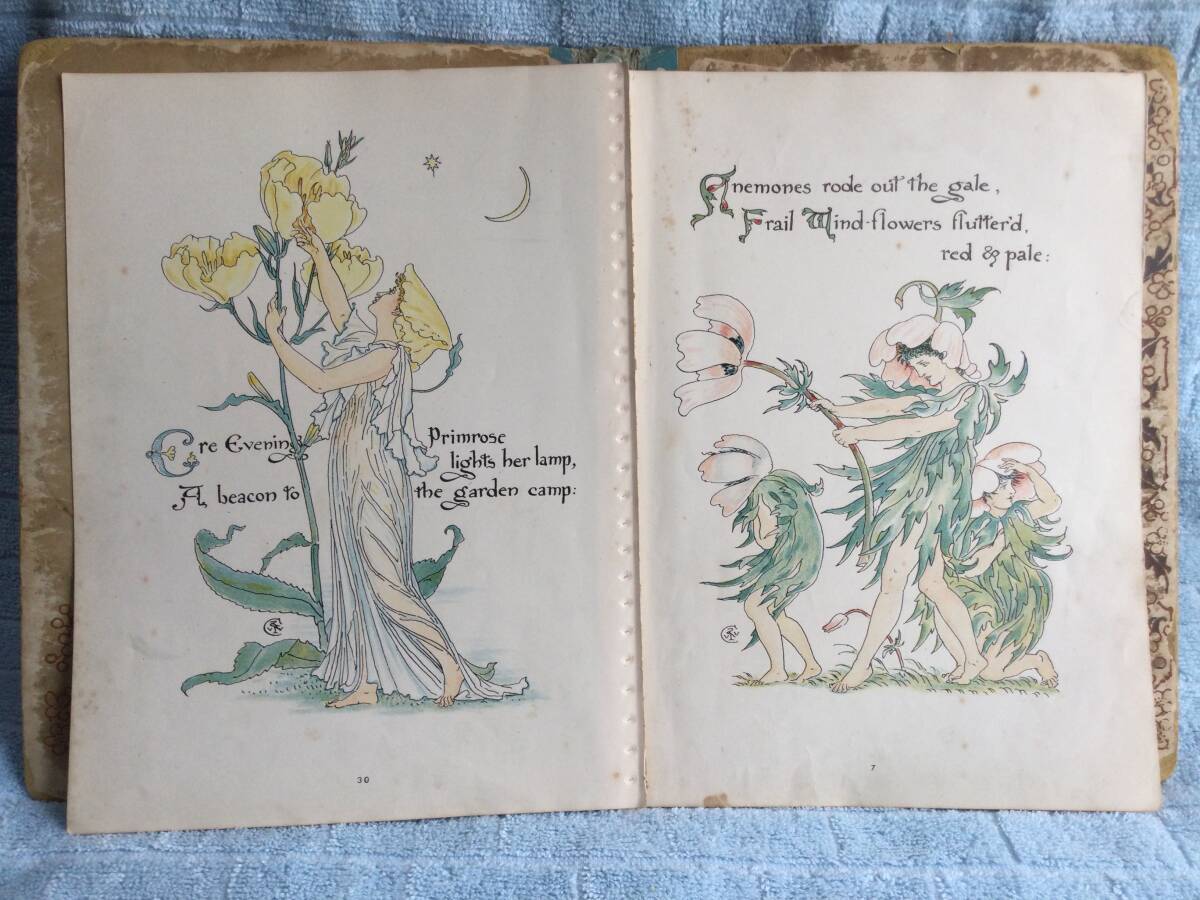 Ere Evening Primrose
lights her lamp,
A beacon to the garden camp:
30
Anemones rode out the gale,
Frail Wind-flowers flutter'd,
red & pale:
7